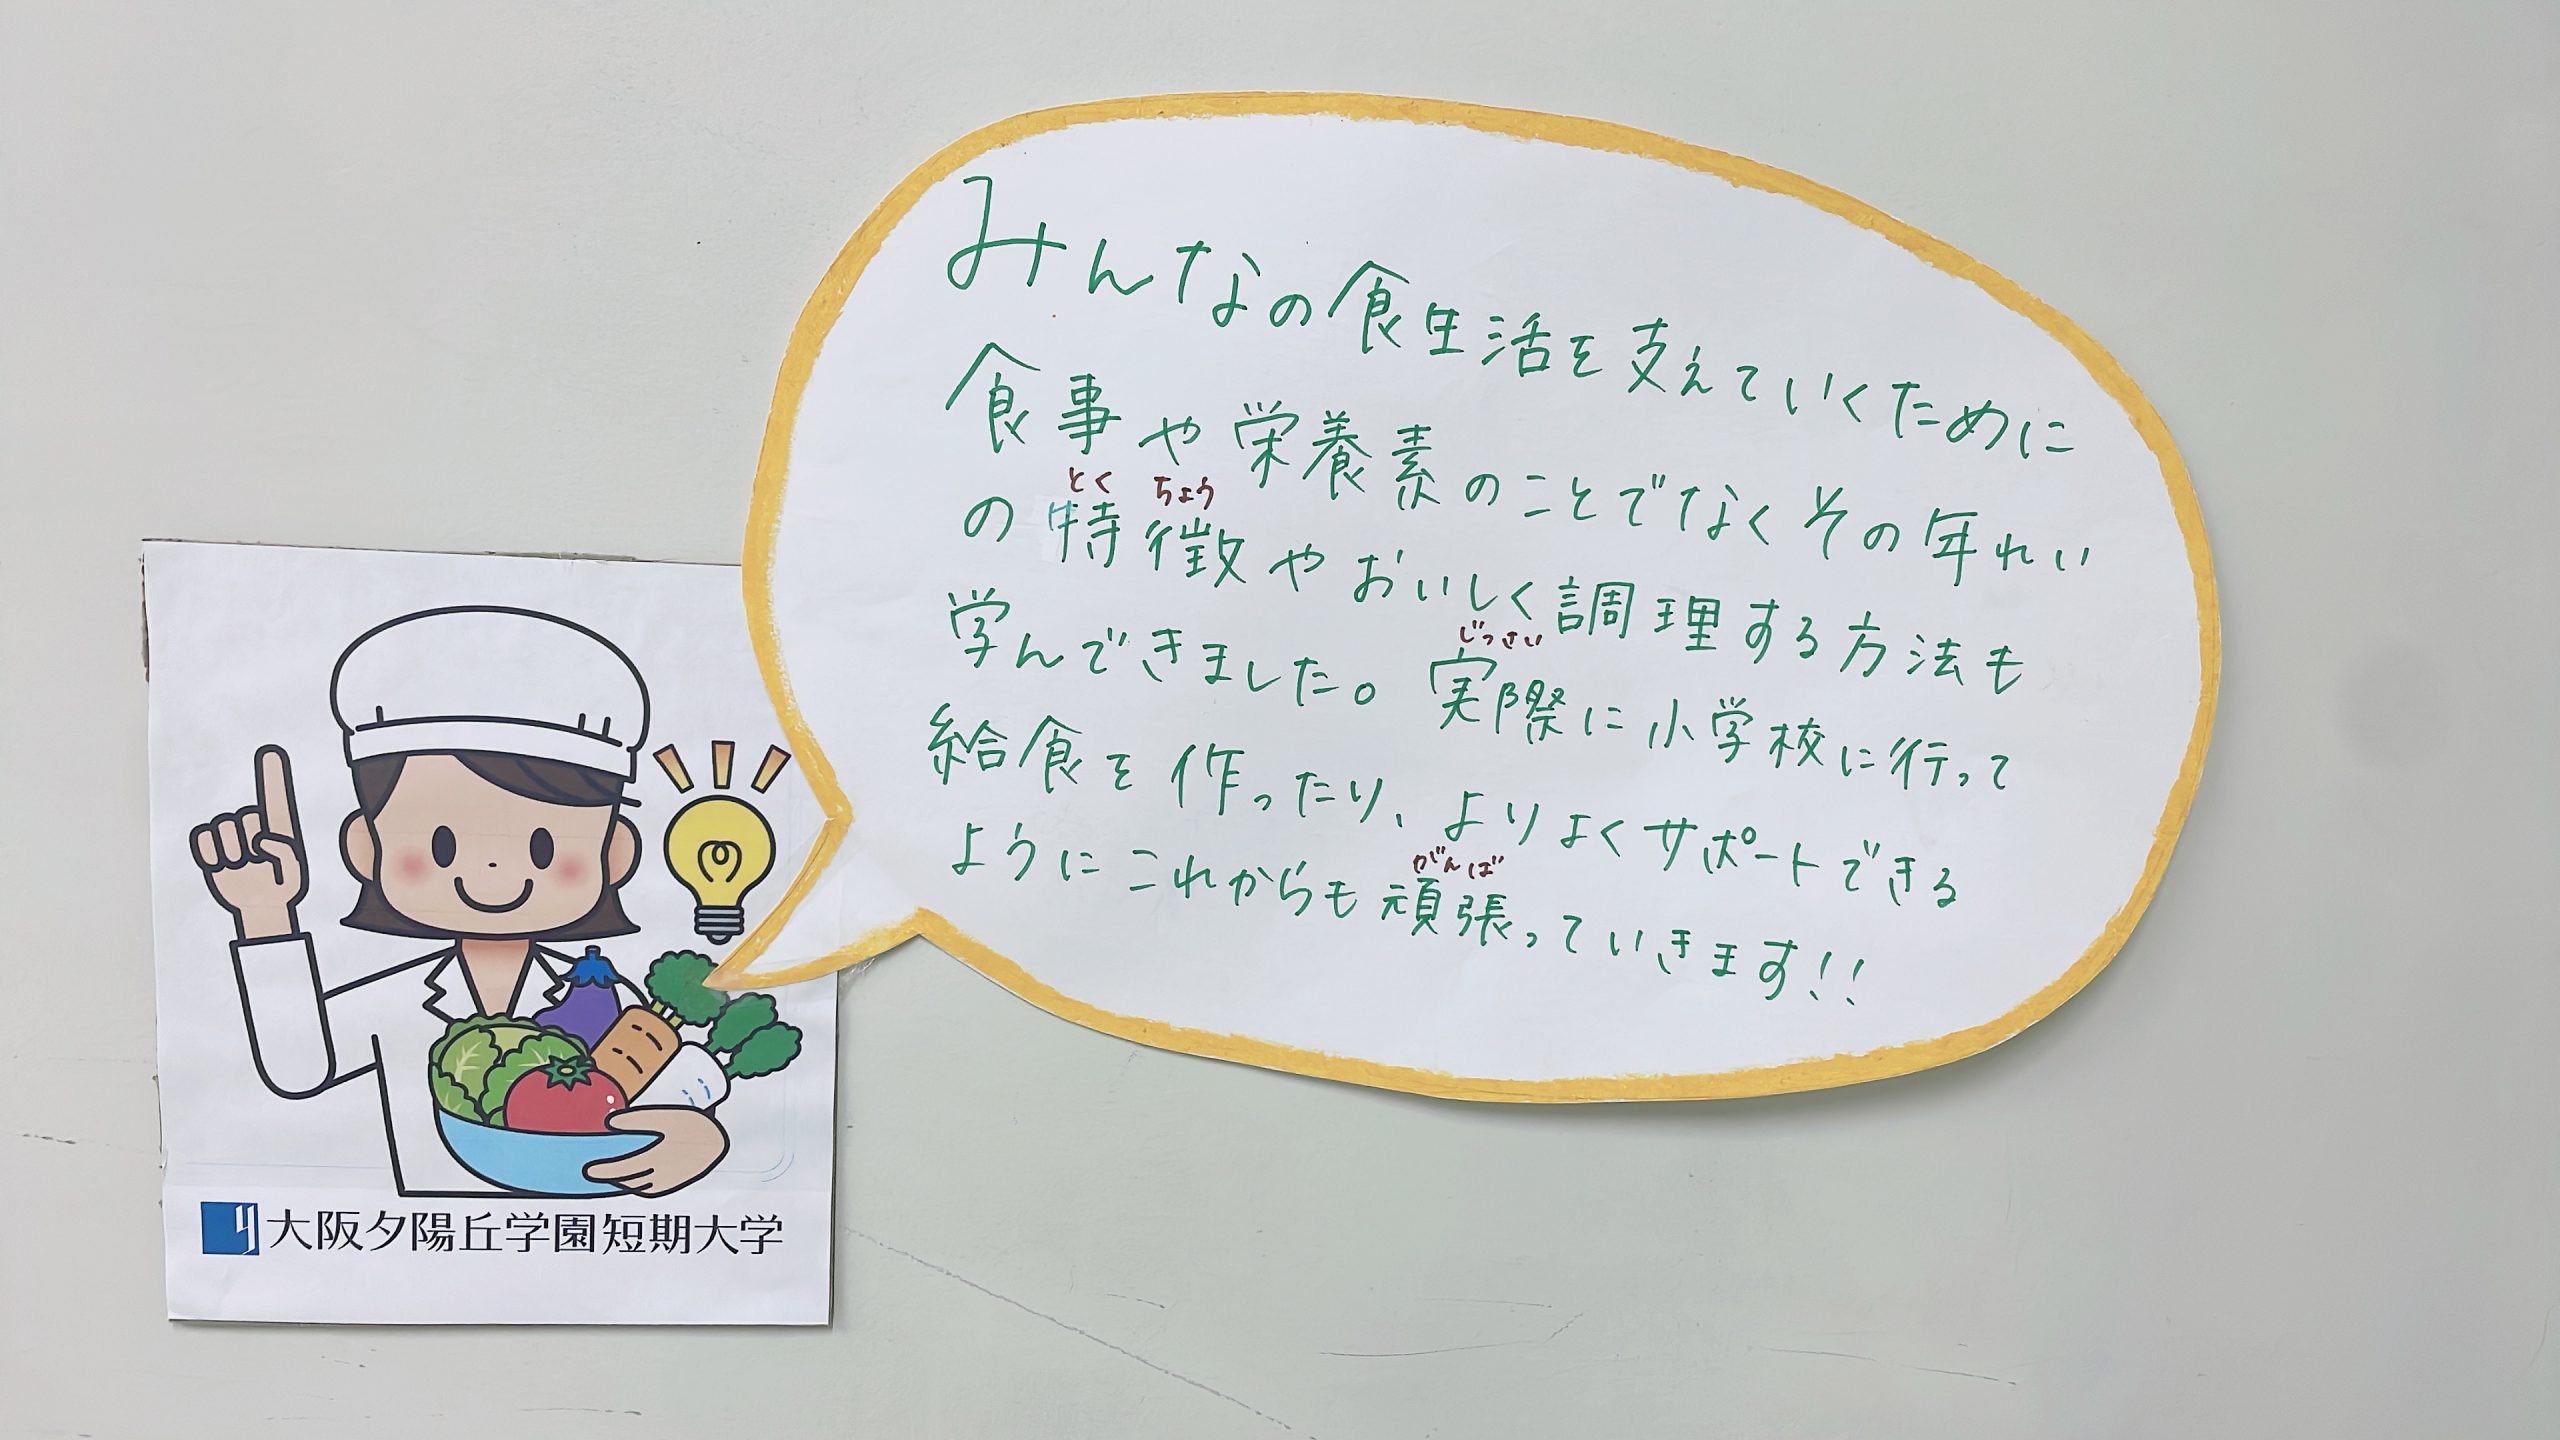 みんなの食生活を支えていくために
食事や栄養素のことでなくその年れい
とく ちょう
の特徴やおいしく調理する方法も
じっさい
学んできました。実際に小学校に行って
給食を作ったり、よりよくサポートできる
がんば
ようにこれからも頑張っていきます!!
大阪夕陽丘学園短期大学